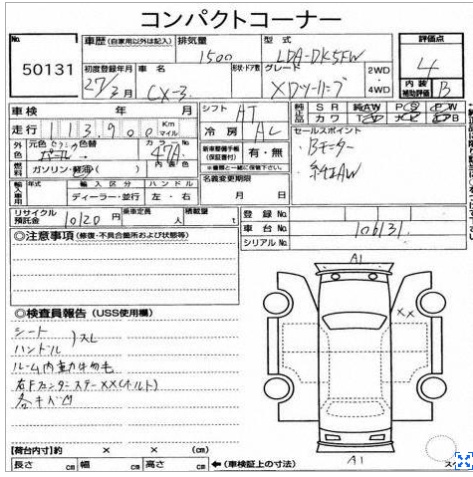 コンパクトコーナー
No. 50131
車歴（自家用以外は記入） 排気量 1500 型式 LDA-DK5FW 評価点 4
初度登録年月 27/3月 車名 CX-3 形状・ドア数 グレード XDツーリング 2WD 4WD 内装補助評価 B
車検 年 月 シフト AT 純正品 SR 純AW PS PW
走行 113,900 Km マイル 冷房 AC カワ TV ナビ エアB
外色 元色 パール 色替 カラーNo. 47A 内装色 新車整備手帳（保証書付） 有・無 セールスポイント
・Bモーター
・純正AW
燃料 ガソリン・軽油（ ）
輸入車用 年式 輸入区分 ディーラー・並行 ハンドル 左・右 名義変更期限 月 日
リサイクル預託金 10120円 乗車定員 人 積載量 t 登録No.
車台No. 106131
シリアルNo.
◎注意事項（修復・不具合箇所および状態等）
◎検査員報告（USS使用欄）
シート
ハンドル ）スレ
ルーム内動物毛
右Fフェンダーステー XX（ボルト）
各キズ凹
A1
XX
A1
【荷台内寸】約 × × (cm)
長さ cm 幅 cm 高さ cm ←（車検証上の寸法）